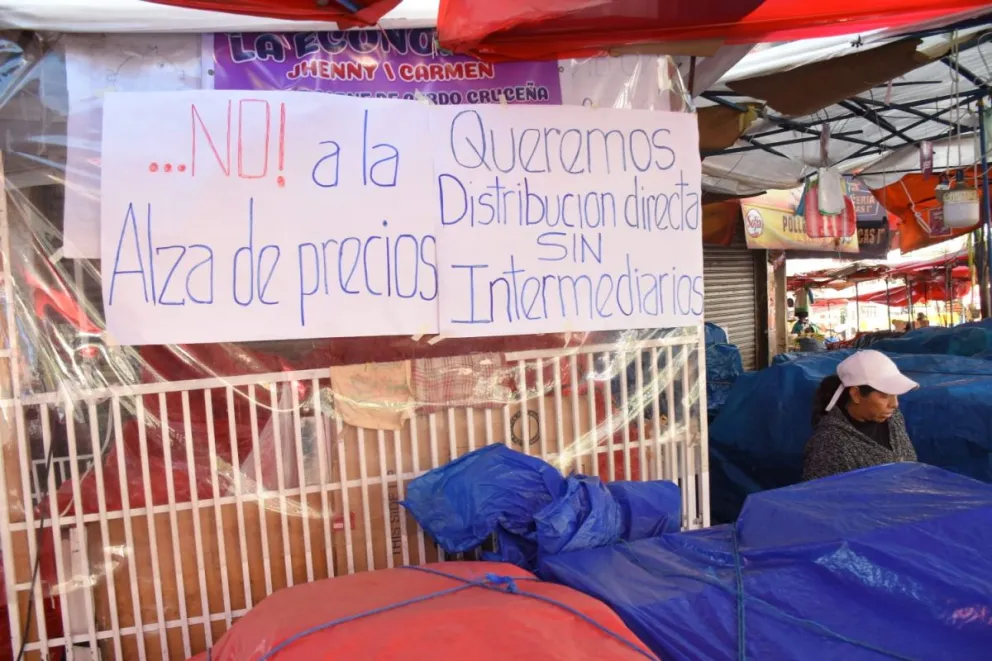 LA ECONO
JHENNY I CARMEN
DO CRUCEÑA
...NO! a la
Alza de precios
Queremos
Distribucion directa
SIN
Intermediarios
Sofía
POLLO
THIS SIDE